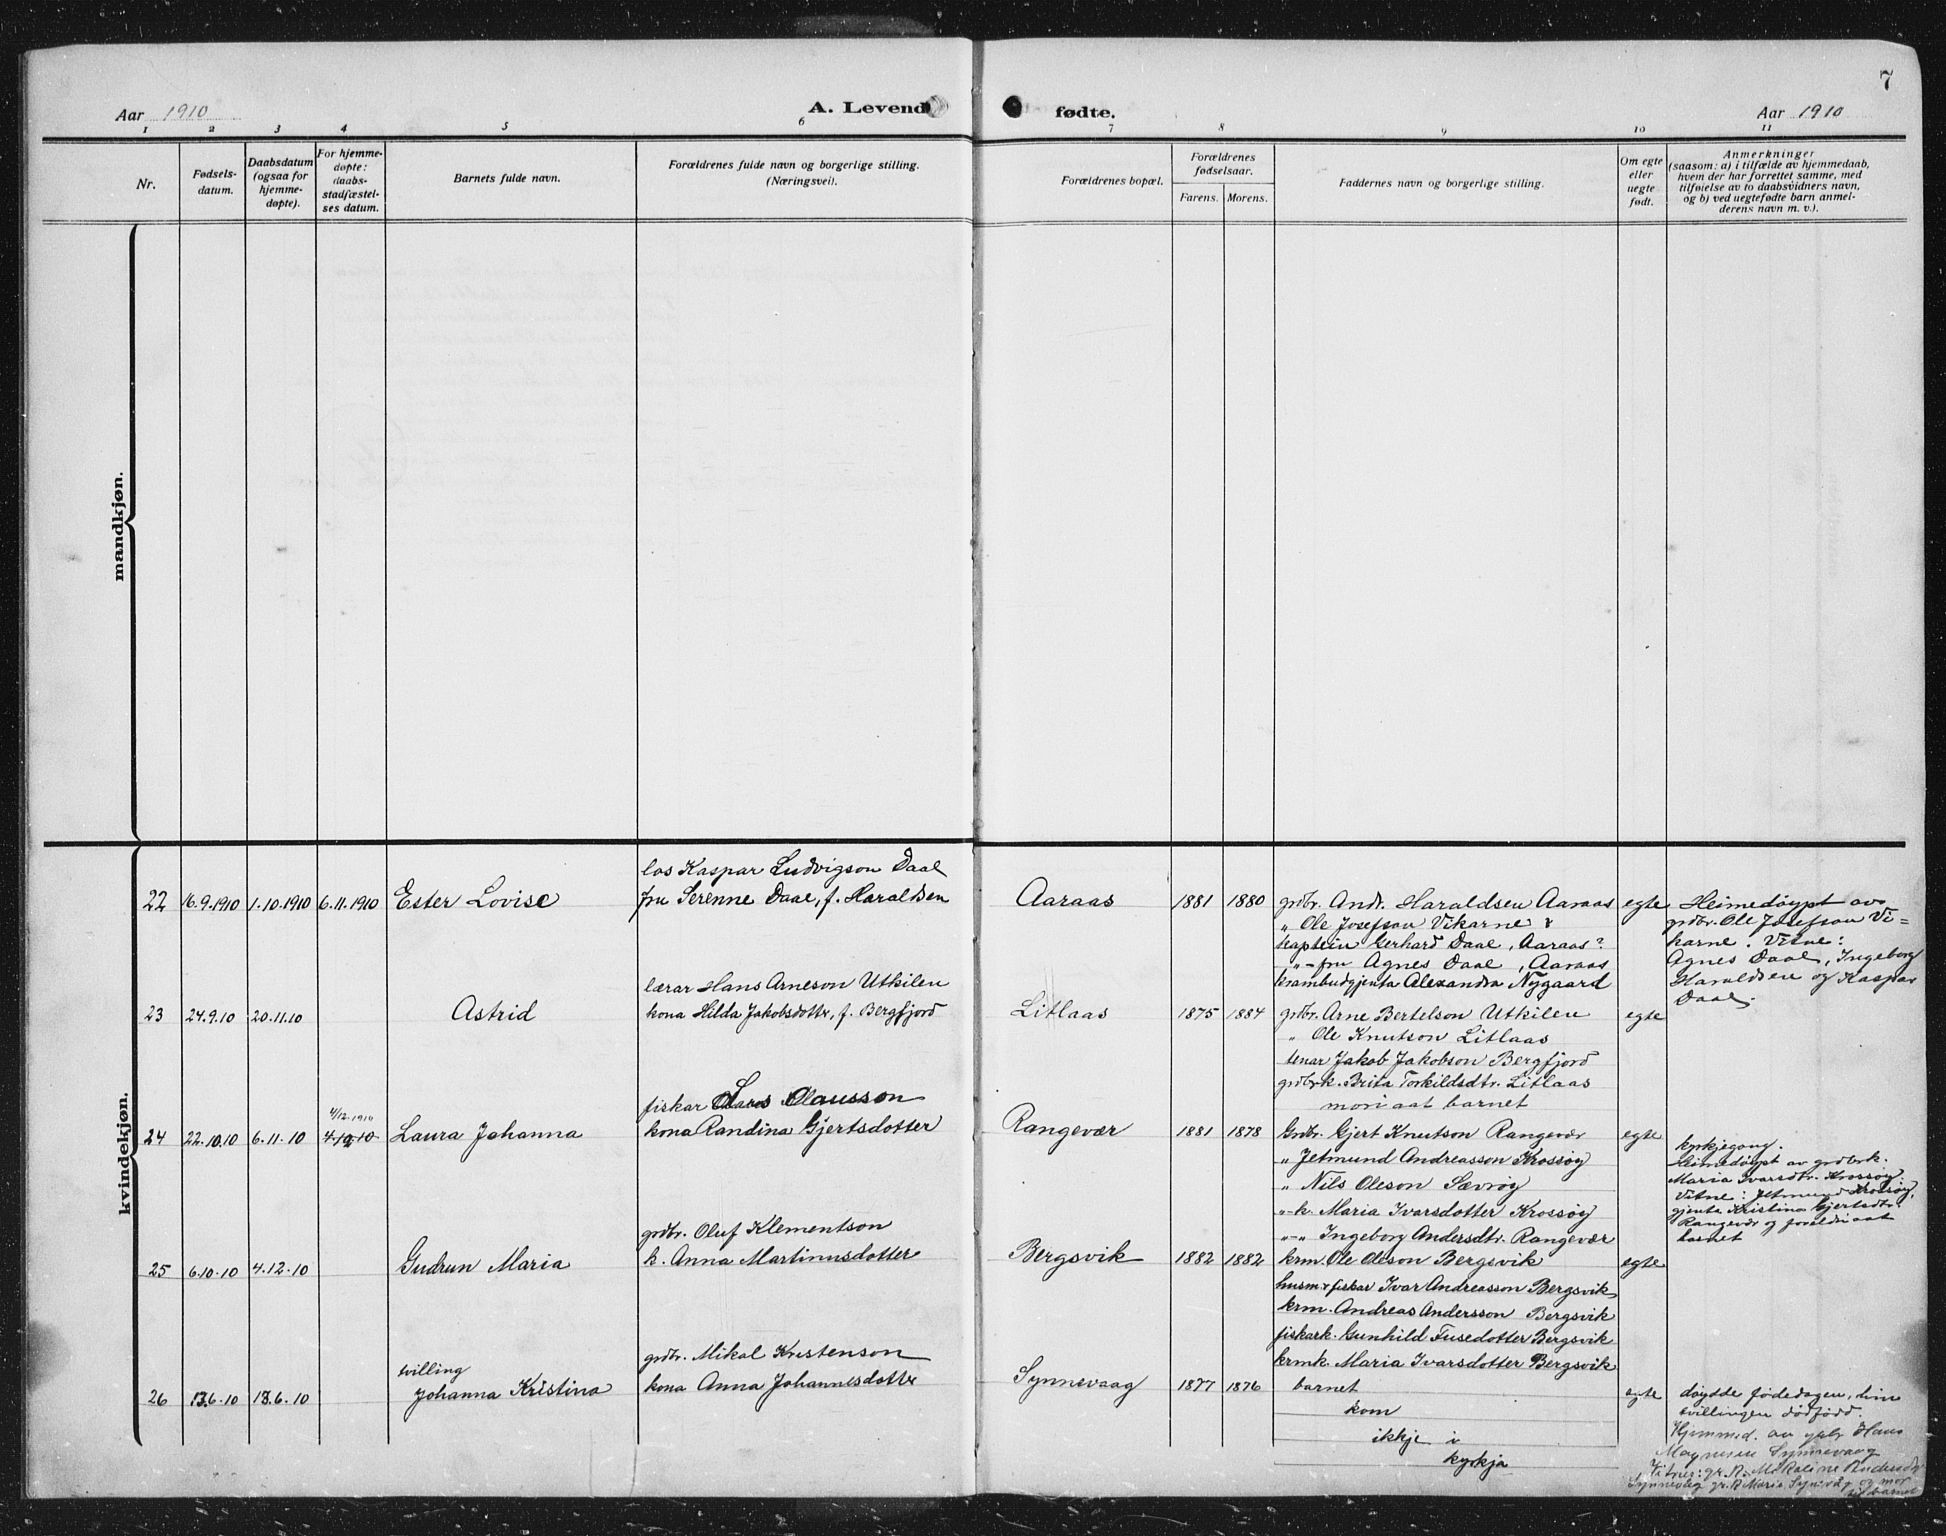 7
Aar 1910
A. Levende
fødte.
Aar 1910
1 2 3 4 5 6 7 8 9 10 11
Nr.
Fødsels-
datum.
Daabsdatum
(ogsaa for
hjemme-
døpte).
For hjemme-
døpte:
daabs-
stadfæstel-
ses datum.
Barnets fulde navn.
Forældrenes fulde navn og borgerlige stilling.
(Næringsvei).
Forældrenes bopæl.
Forældrenes
fødselsaar.
Farens. Morens.
Faddernes navn og borgerlige stilling.
Om egte
eller
uegte
født.
Anmerkninger
(saasom: a) i tilfælde av hjemmedaab,
hvem der har forrettet samme, med
tilføielse av to daabsvidners navn,
og b) ved uegtefødte barn anmel-
derens navn m. v.).
mandkjøn.
kvindekjøn.
22 16.9.1910 1.10.1910 6.11.1910 Ester Lovise
los Kaspar Ludvigson Daal
fru Serenne Daae, f. Haraldsen
Aaraas 1881 1880
grdbr. Andr. Haraldsen Aaraas
„ Ole Josefson Vikarne &
kaptein Gerhard Daae, Aaraas?
„-fru Agnes Daae, Aaraas
krambudgjenta Alexandra Nygaard
egte
Heimedøypt av
grdbr. Ole Josefson Vi=
karne. Vitne:
Agnes Daae, Ingeborg
Haraldsen og Kaspar
Daae.
23 24.9.10 20.11.10 Astrid
lærar Hans Arneson Utkilen
kona Hilda Jakobsdottr, f. Bergfjord
Litlaas 1875 1884
grdbr. Arne Bertelson Utkilen
„ Ole Knutson Litlaas
tenar Jakob Jakobson Bergfjord
grdbrk. Brita Torkildsdtr. Litlaas
mori aat barnet
egte
4/12.1910
24 22.10.10 6.11.10 4.12.10 Laura Johanna
fiskar Lars Olausson
kona Randina Gjertsdotter
Rangevær 1881 1878
Grdbr. Gjert Knutson Rangevær
„ Jetmund Andreasson Krossøy
„ Nils Oleson Sævrøy
„-k. Maria Ivarsdotter Krossøy
„-„ Ingeborg Andersdtr. Rangevær
egte
kyrkjegong.
Heimedøypt av grdbrk.
Maria Ivarsdtr. Krossøy
Vitne: Jetmund Krossøy,
gjenta Kristina Gjertsdtr.
Rangevær og foreldri aat
barnet
25 6.10.10 4.12.10 Gudrun Maria
grdbr. Oluf Klementson
k. Anna Martinusdotter
Bergsvik 1882 1882
krm. Ole Oleson Bergsvik
husm & fiskar Ivar Andreasson Bergsvik
krm. Andreas Andersson Bergsvik
fiskark. Gunhild Fusedotter Bergsvik
krmk. Maria Ivarsdotter Bergsvik
egte
26 13.6.10 13.6.10
tvilling
Johanna Kristina
grdbr. Mikal Kristenson
kona Anna Johannesdotter
Synnevaag 1877 1876
barnet
kom
ikkje i
kyrkja
egte
døydde fødedagen, hin
tvillingen dødfødd.
Hjemmed. av Hans
Magnesen Synnevaag
Vitnes:
Synnevåg og mor
til barnet